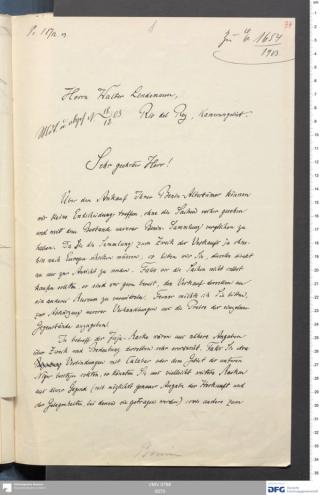 zu 1654
1903
74
Herrn Walter Lindemann,
Rio del Rey, Kamerungebiet.
Sehr geehrter Herr!
Über den Ankauf Ihrer Benin-Altertümer können
wir keine Entscheidung treffen, ohne die Sachen vorher gesehen
und mit dem Bestande unserer Benin-Sammlung verglichen zu
haben. Da Sie die Sammlung zum Zweck des Verkaufs ja ohne-
hin nach Europa schicken müssen, so bitten wir Sie, dieselbe direkt
an uns zur Ansicht zu senden. Falls wir die Sachen nicht selbst
kaufen sollten, so sind wir gern bereit, den Verkauf derselben an
ein anderes Museum zu vermitteln. Ferner möchte ich Sie bitten,
zur Abkürzung unserer Verhandlungen mir die Preise der einzelnen
Gegenstände anzugeben.
In betreff der Maske wären nähere Angaben
über Zweck und Bedeutung derselben sehr erwünscht. Falls Sie etwa
Verbindungen mit Calabar oder dem Gebiet des unteren
Niger besitzen sollten, so könnten Sie uns vielleicht weitere Masken
aus dieser Gegend (mit möglichst genauer Angabe der Herkunft und
der Gelegenheiten, bei denen sie getragen werden), sowie andere zum
VIII/ 0768
DFG